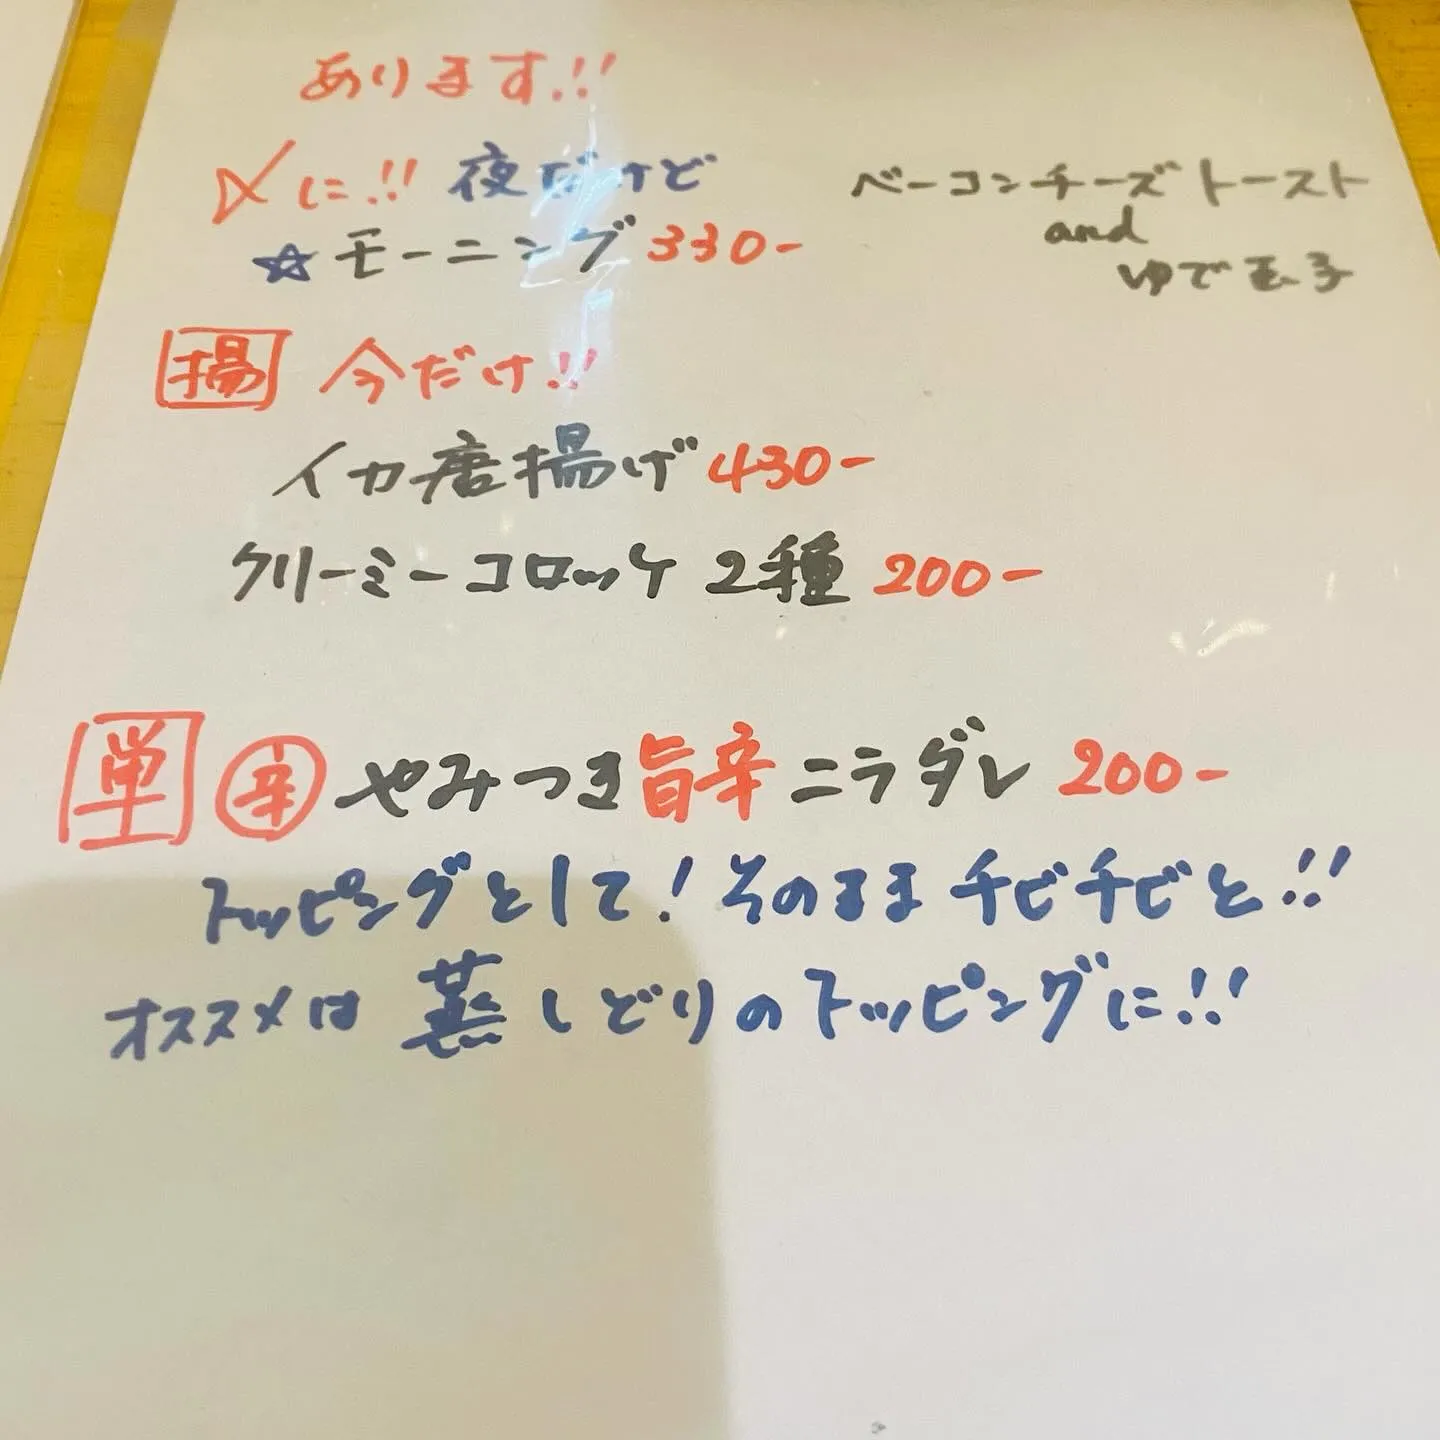 あります!!
〆に!! 夜だけど
☆モーニング 330-
ベーコンチーズトースト
and
ゆで玉子
揚 今だけ!!
イカ唐揚げ 430-
クリーミーコロッケ 2種 200-
単 辛 やみつき旨辛ニラダレ 200-
トッピングとして! そのままチビチビと!!
オススメは 蒸しどりのトッピングに!!